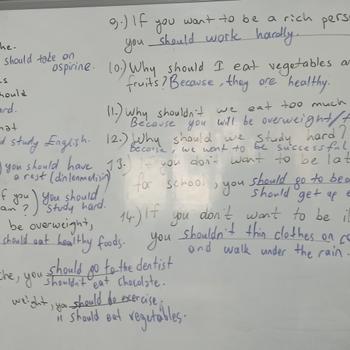 he.
should take on
aspirine.
should
ard.
hat
d study English.
you should have
a rest (dinlenmelisin)
f you ) you should
am? ) study hard.
be overweight,
should eat healthy foods.
che, you should go to the dentist
shouldn't eat chocolate.
weight, you should do exercise.
" should eat vegetables.
9.) If you want to be a rich pers
you should work hardly.
10.) Why should I eat vegetables a
fruits? Because, they are healthy.
11.) Why shouldn't we eat too much
Because you will be overweight/f
12.) Why should we study hard?
Because, we want to be successful
13. If you don't want to be lat
for school, you should go to be
should get up e
14.) If you don't want to be i
you shouldn't thin clothes on
and walk under the rain.